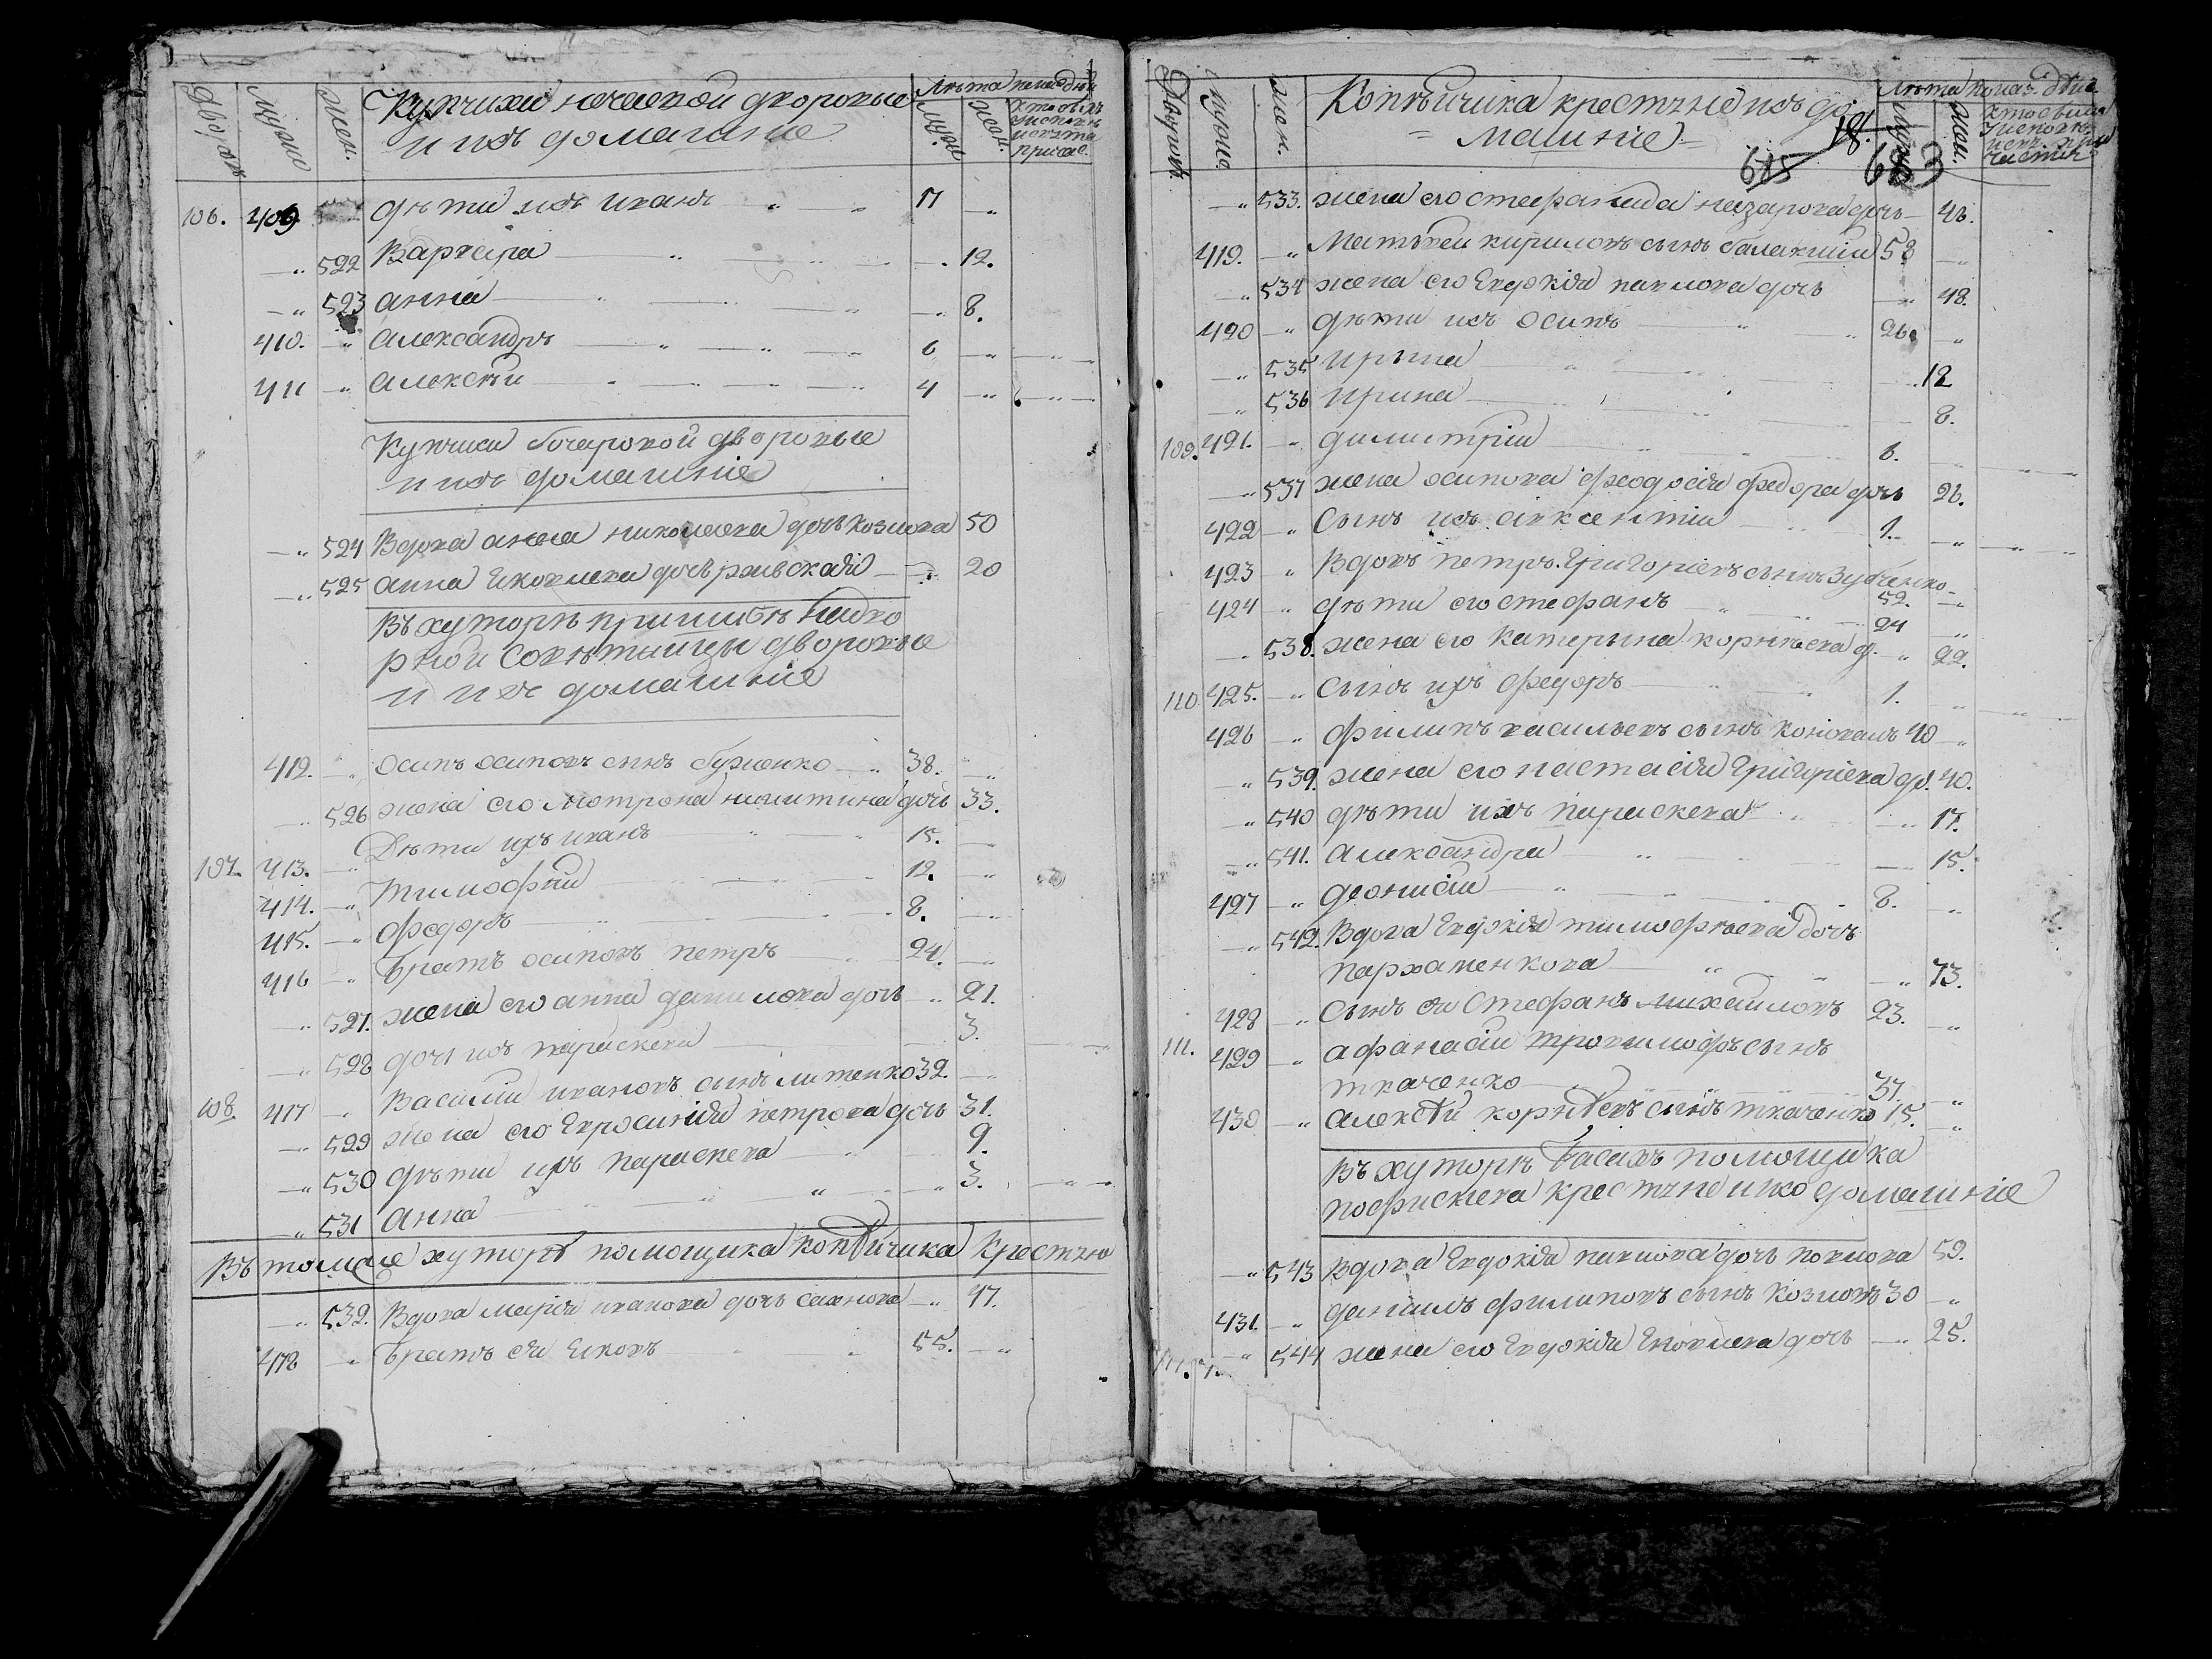 Дворовъ Мужи Жен. Купчихи нечаевой дворовые Лѣта
и ихъ домашніе Муж. Жен.
106. 409 дѣти ихъ иванъ 17
522 Варвара 12.
523 анна 8.
410. александръ 6
411 алексѣй 4
Купчихи бочаровой дворовые
и ихъ домашніе
524 Вдова анна николаева дочь козлова 50
525 анна Яковлева дочь ржевская 20
Въ хуторѣ пришибѣ надво
рной совѣтницы дворовые
и ихъ домашніе
412. осипъ осиповъ сынъ бузенко 38.
526 жена его мотрона никитина дочь 33.
107. 413. Дѣти ихъ иванъ 15.
414. тимофей 12.
415. федоръ 8.
416 братъ осиповъ петръ 24.
527. жена его анна данилова дочь 21.
528 дочь ихъ параскева 3.
108. 417 Василій ивановъ сынъ литенко 32.
529 жена его Евросинія петрова дочь 31.
530 дѣти ихъ параскева 9.
531 анна 3.
Въ томже хуторѣ помещика копѣйчика крестяне
532. Вдова марія иванова дочь сахнова 47.
418 братъ ея Яковъ 55.
Дворовъ Мужие Жен. Копѣйчика крестяне ихъ до
машніе
181.
685 683
533. жена его стефанида назарова дочь 46.
419. Матвѣй кириловъ сынъ балакшій 53
534 жена его Евдокія павлова дочь 48.
420 дѣти ихъ осипъ 26
535 ирына 12
536 ирина 8.
109. 421. димитрій 6.
537 жена осипова феодосія федорова дочь 26.
422 Сынъ ихъ авксентій 1.
423 Вдовъ петръ Григоріевъ сынъ Зубченко 52.
424 дѣти его стефанъ 24
538. жена его катерына корнѣева д. 22.
110 425. Сынъ ихъ федоръ 1.
426 филипъ васильевъ сынъ коноваль 40
539. жена его настасія Григоріева до. 40.
540 дѣти ихъ параскева 17.
541. александра 15.
427 деонисій 8.
542. Вдова Евдокія тимофѣева дочь
пархаменкова 73.
428 Сынъ ея Стефанъ михайловъ 23.
111. 429 афанасій трохимофъ сынъ
ткаченко 37.
430 алексѣй корнѣевъ сынъ ткаченко 15.
Въ хуторѣ басахъ помощика
пофискева крестяне ихо домашніе
543 Вдова Евдокія павлова дочь 59.
431. данилъ филиповъ сынъ козловъ 30
544 жена его Евдокія Яковлева дочь 25.